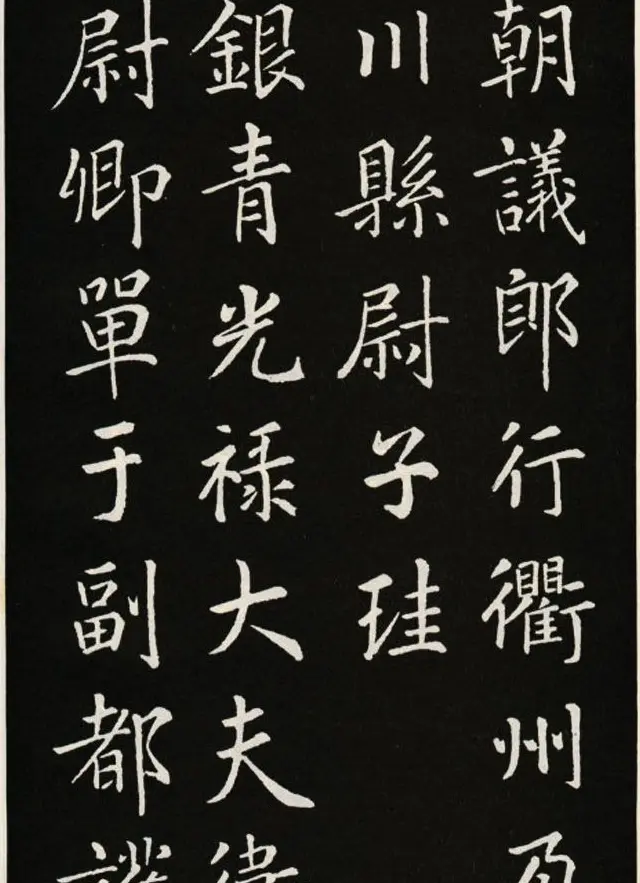 朝議郎行衢州
川縣尉子珪
銀青光禄大夫
尉卿單于副都